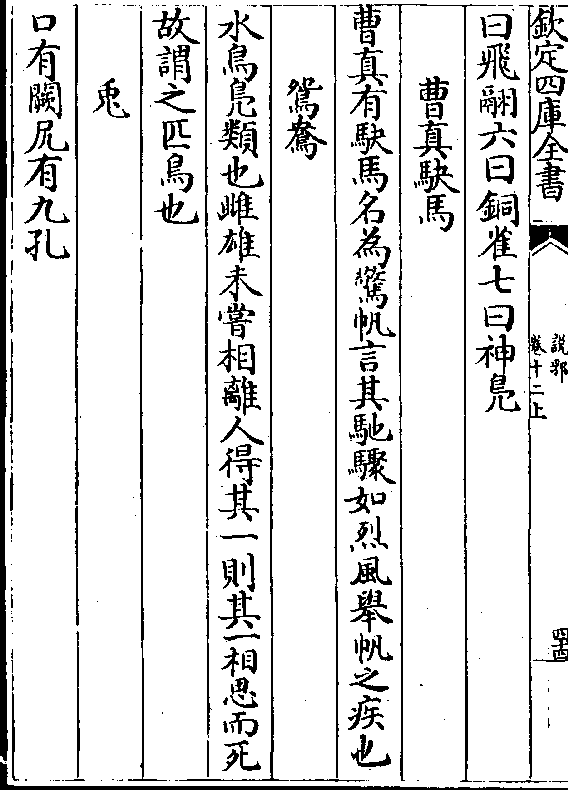 欽定四庫全書
說郛
卷十二上
曰飛翮六曰銅雀七曰神鳧
曹真駃馬
曹真有駃馬名為驚帆言其馳驟如烈風舉帆之疾也
鴛鴦
水鳥鳧類也雌雄未嘗相離人得其一則其一相思而死
故謂之匹鳥也
兎
口有闕尻有九孔